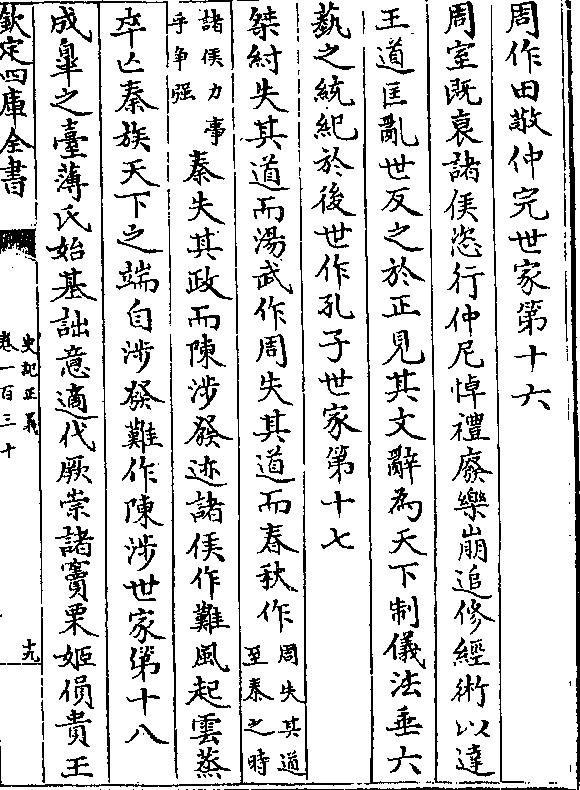 周作田敬仲完世家第十六
周室既衰諸侯恣行仲尼悼禮廢樂崩追修經術以達
王道匡亂世反之於正見其文辭為天下制儀法垂六
藝之統紀於後世作孔子世家第十七
桀紂失其道而湯武作周失其道而春秋作周失其道至秦之時
諸侯力事乎爭强秦失其政而陳涉發迹諸侯作難風起雲蒸
卒亡秦族天下之端自涉發難作陳涉世家第十八
成臯之臺薄氏始基詘意適代厥崇諸竇栗姬偩貴王
欽定四庫全書
史記正義
卷一百三十
十九